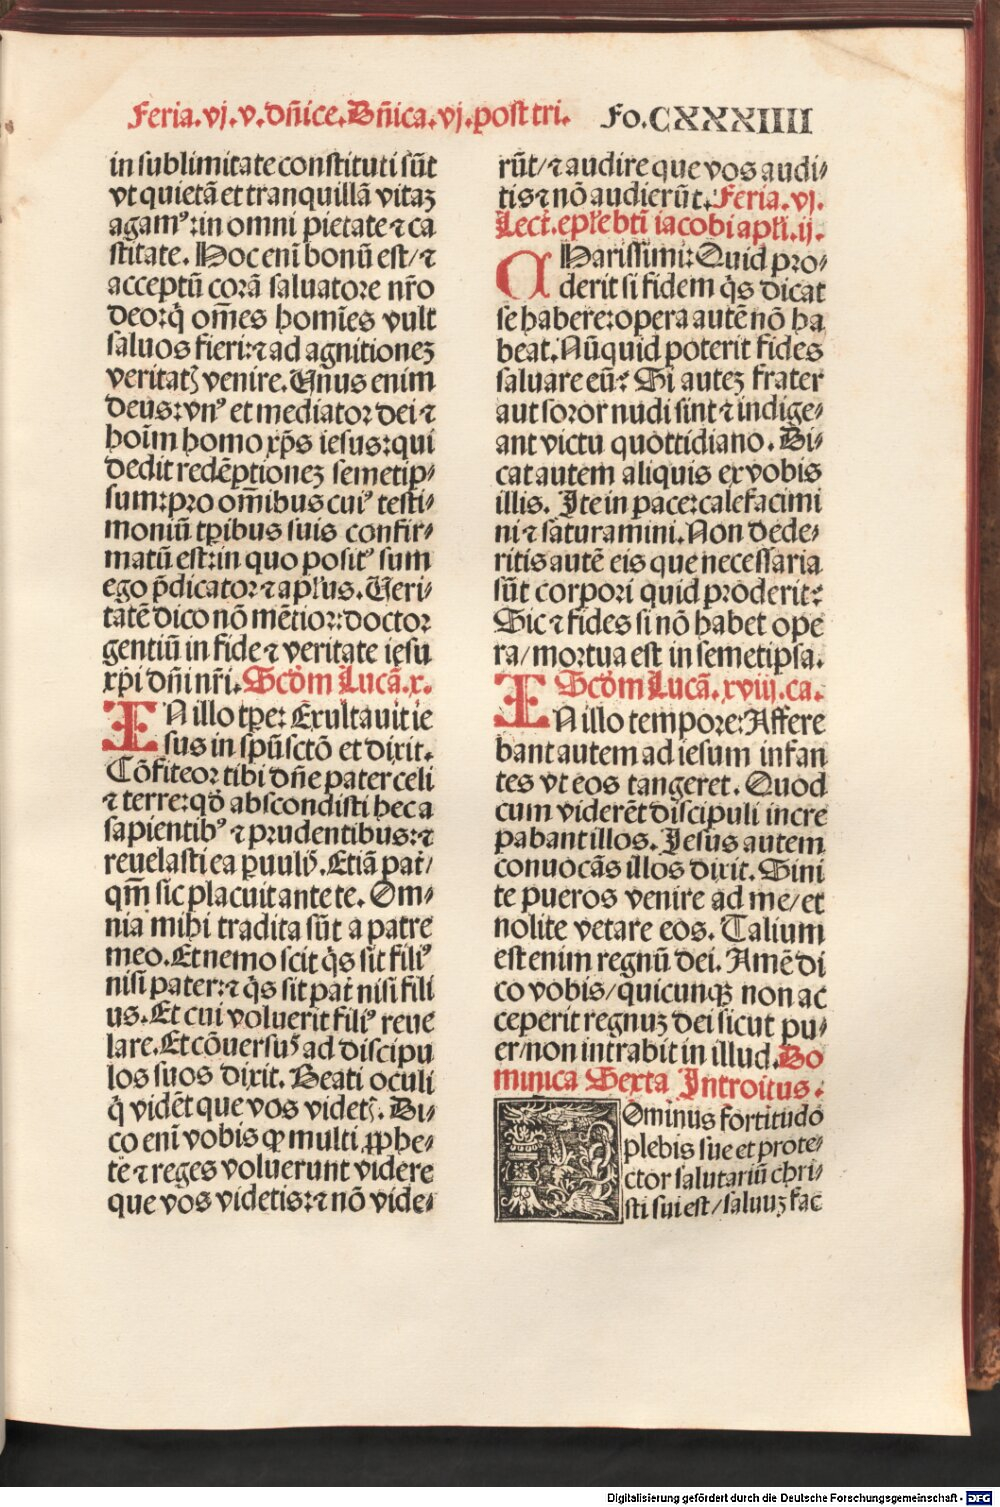 Feria.vj.v.dñice.Dñica.vj.post tri. Fo.CXXXIIII
in sublimitate constituti sūt
vt quietā et tranquillā vitaꝫ
agamꝰ:in omni pietate ⁊ ca
stitate. Hoc eni bonū est/⁊
acceptū corā saluatore nr̄o
deo:q̇ om̄es homīes vult
saluos fieri:⁊ ad agnitioneꝫ
veritatꝭ venire. Unus enim
deus:vnꝰ et mediator dei ⁊
hoīm homo xp̄s iesus:qui
dedit redēptioneꝫ semetip⸗
sum:pro om̄ibus cuiꝰ testi⸗
moniū tꝑibus suis confir⸗
matū est:in quo positꝰ sum
ego p̄dicator ⁊ apl̄us. Ueri⸗
tatē dico nō mētior:doctor
gentiū in fide ⁊ veritate iesu
xp̄i dñi nr̄i. Scd̄m Lucā.x.
IN illo tꝑe: Exultauit ie
sus in spūsctō et dixit.
Cōfiteor tibi dñe pater celi
⁊ terre:qd̄ abscondisti hec a
sapientibꝰ ⁊ prudentibus:⁊
reuelasti ea ꝑuulꝭ. Etiā pat̄/
qm̄ sic placuit ante te. Om⸗
nia mihi tradita sūt a patre
meo. Et nemo scit q̇s sit filiꝰ
nisi pater:⁊ q̇s sit pat̄ nisi fili
us. Et cui voluerit filiꝰ reue
lare. Et cōuersuꝭ ad discipu
los suos dixit. Beati oculi
q̇ vidēt que vos videtꝭ. Di⸗
co eni vobis ꝙ multi ꝓphe⸗
te ⁊ reges voluerunt videre
que vos videtis:⁊ nō vide⸗
rūt/⁊ audire que vos audi⸗
tis ⁊ nō audierūt. Feria.vj.
Lect̄. epl̄e bt̄i iacobi apl̄i.ij.
CHarissimi: Quid pro⸗
derit si fidem q̇s dicat
se habere:opera autē nō ha
beat. Nūquid poterit fides
saluare eū? Si auteꝫ frater
aut soror nudi sint ⁊ indige⸗
ant victu quottidiano. Di⸗
cat autem aliquis ex vobis
illis. Ite in pace:calefacimi
ni ⁊ saturamini. Non dede⸗
ritis autē eis que necessaria
sūt corpori quid proderit?
Sic ⁊ fides si nō habet ope
ra/mortua est in semetipsa.
Scd̄m Lucā.xviij.ca.
IN illo tempore: Affere
bant autem ad iesum infan
tes vt eos tangeret. Quod
cum viderēt discipuli incre
pabant illos. Jesus autem
conuocās illos dixit. Sini
te pueros venire ad me/et
nolite vetare eos. Talium
est enim regnū dei. Amē di
co vobis/quicunqꝫ non ac
ceperit regnuꝫ dei sicut pu⸗
er/non intrabit in illud. Do
minica Sexta Introitus.
DOminus fortitudo
plebis sue et prote⸗
ctor salutariū chri⸗
sti sui est/saluuꝫ fac
Digitalisierung gefördert durch die Deutsche Forschungsgemeinschaft - DFG